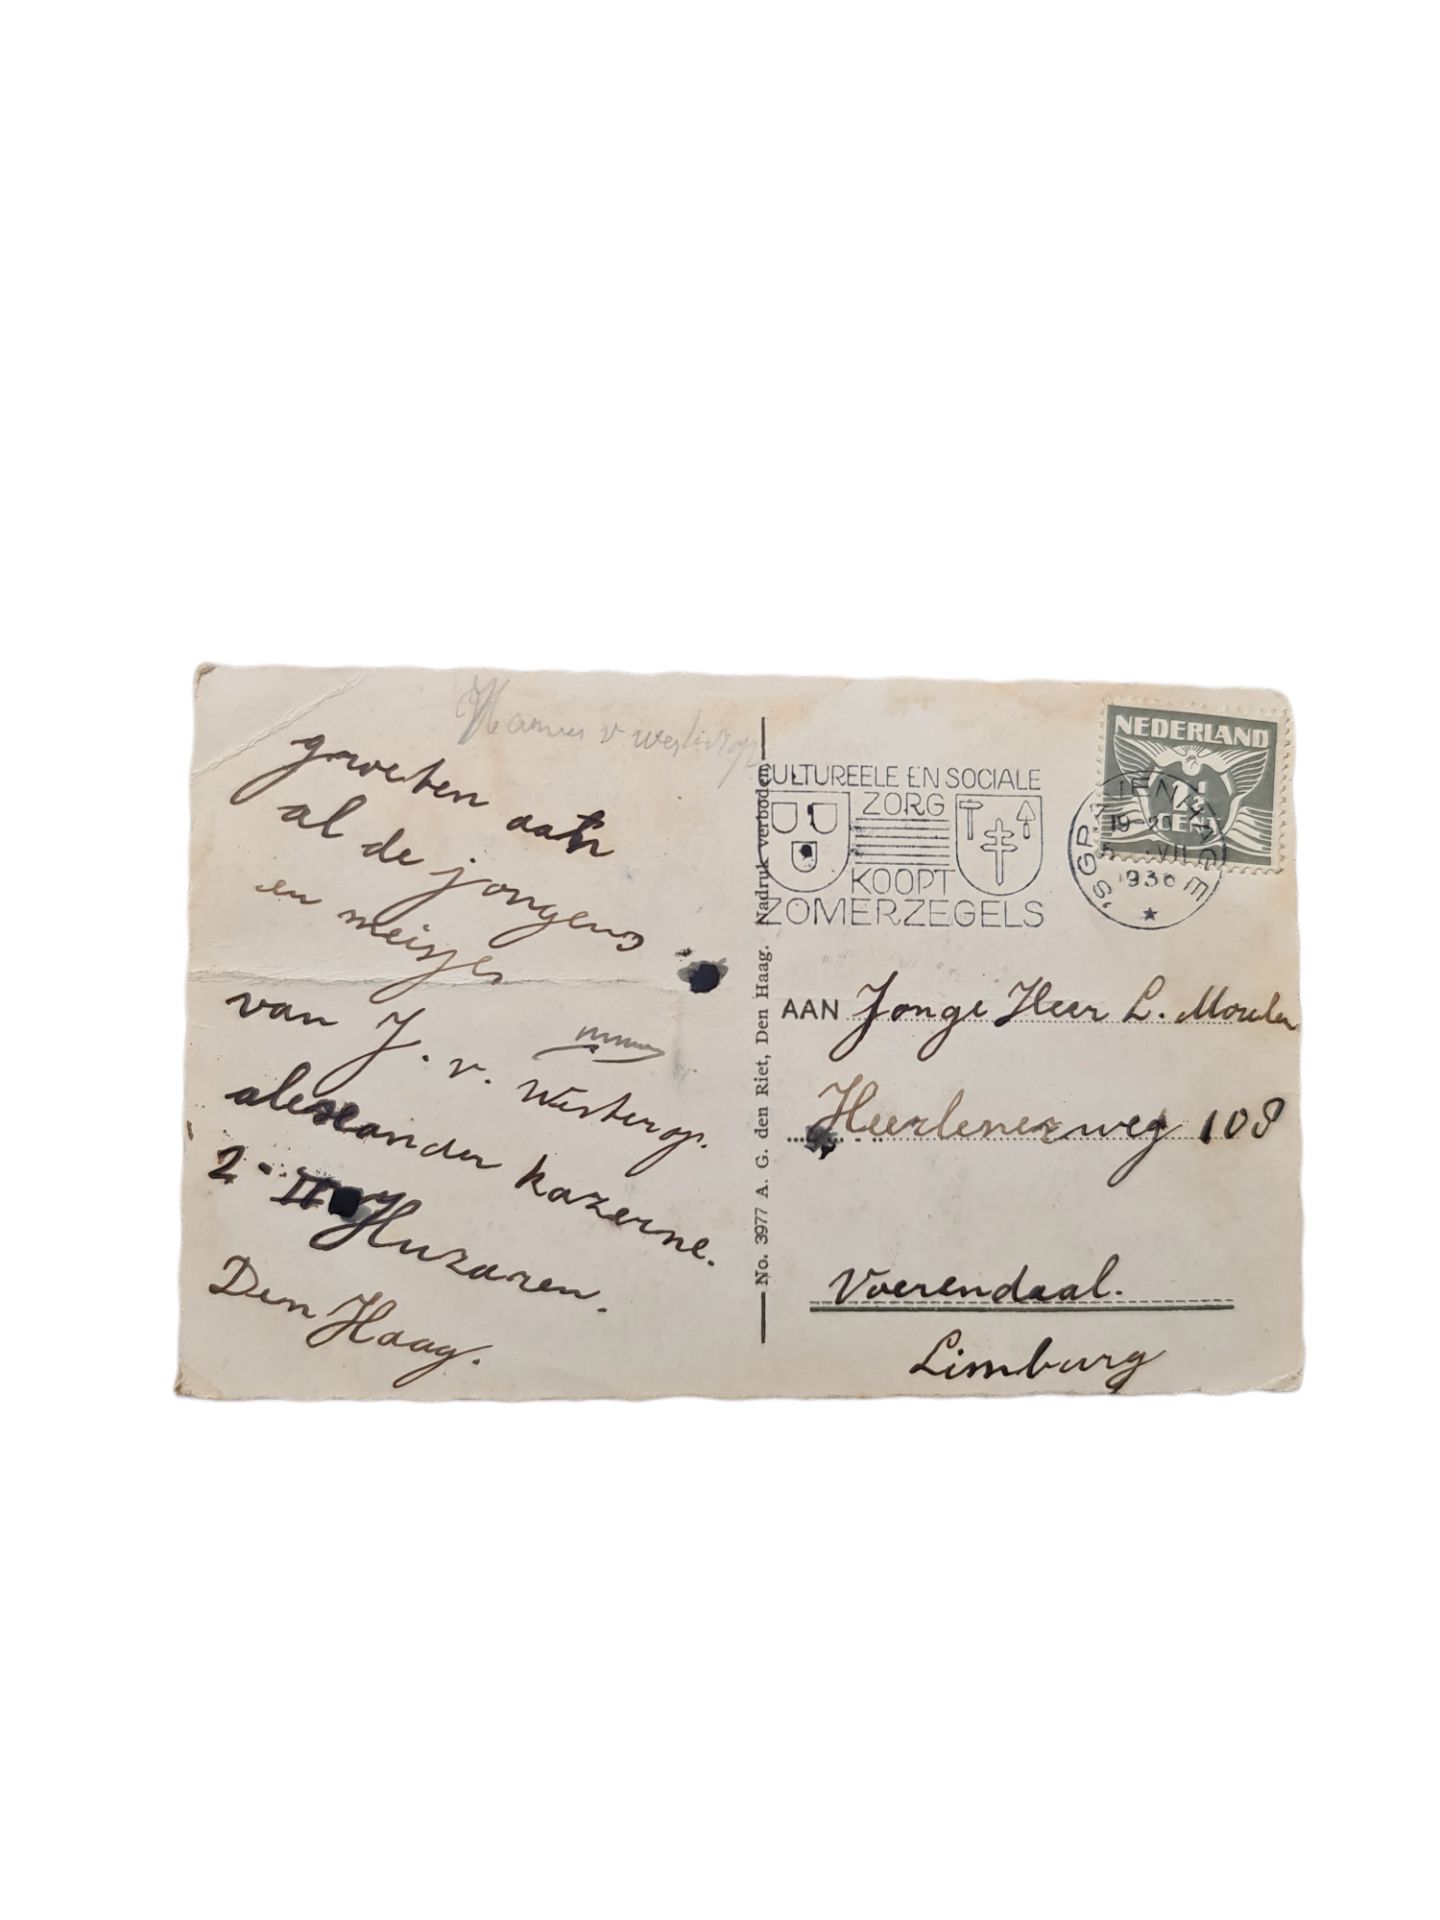 v
groeten aan
al de jongens
en meisjes
van J. v. Westerop.
alexander kazerne.
2-II Huzaren.
Den Haag.
No. 3977 A. G. den Riet, Den Haag. Nadruk verboden
CULTUREELE EN SOCIALE
ZORG
KOOPT
ZOMERZEGELS
NEDERLAND
CENT
'S GRAVENHAGE
VII
1936
AAN Jonge Heer L. Moulen
Heerlenerweg 108
Voerendaal.
Limburg